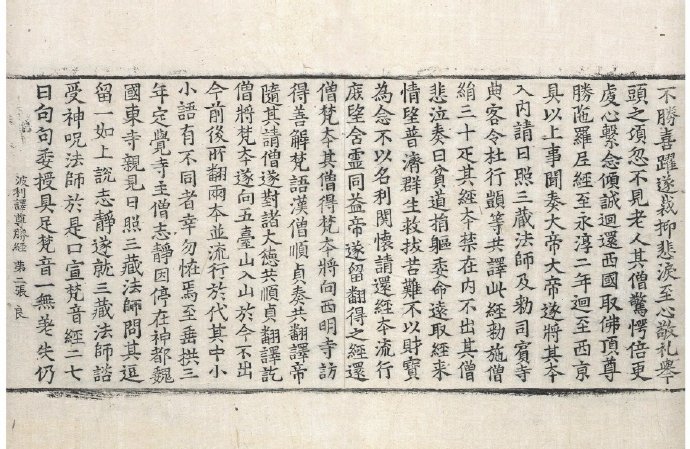 不勝喜躍遂裁抑悲淚至心敬礼舉
頭之頃忽不見老人其僧驚愕倍更
虔心繫念傾誠迴還西國取佛頂尊
勝陁羅尼經至永淳二年迴至西京
具以上事聞奏大帝大帝遂將其夲
入內請日照三藏法師及勑司賓寺
典客令杜行顗等共譯此經勑施僧
絹三十疋其經夲禁在內不出其僧
悲泣奏曰貧道捐軀委命遠取經来
情望普濟群生救拔苦難不以財寶
為念不以名利関懷請還經夲流行
庶望含靈同益帝遂留翻得之經還
僧梵夲其僧得梵夲將向西明寺訪
得善解梵語漢僧順貞奏共翻譯帝
隨其請僧遂對諸大德共順貞翻譯訖
僧將梵夲遂向五臺山入山於今不出
今前後所翻兩夲並流行於代其中小
小語有不同者幸勿恠焉至垂拱三
年定覺寺主僧志靜因停在神都魏
國東寺親見日照三藏法師問其逗
留一如上說志靜遂就三藏法師諮
受神呪法師於是口宣梵音經二七
日句句委授具足梵音一無差失仍
波利譯尊勝經 第二張 良